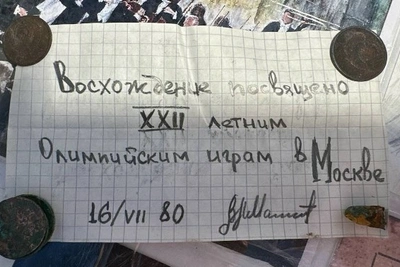 Восхождение посвящено
XXII летним
Олимпийским играм в Москве
16/VII 80